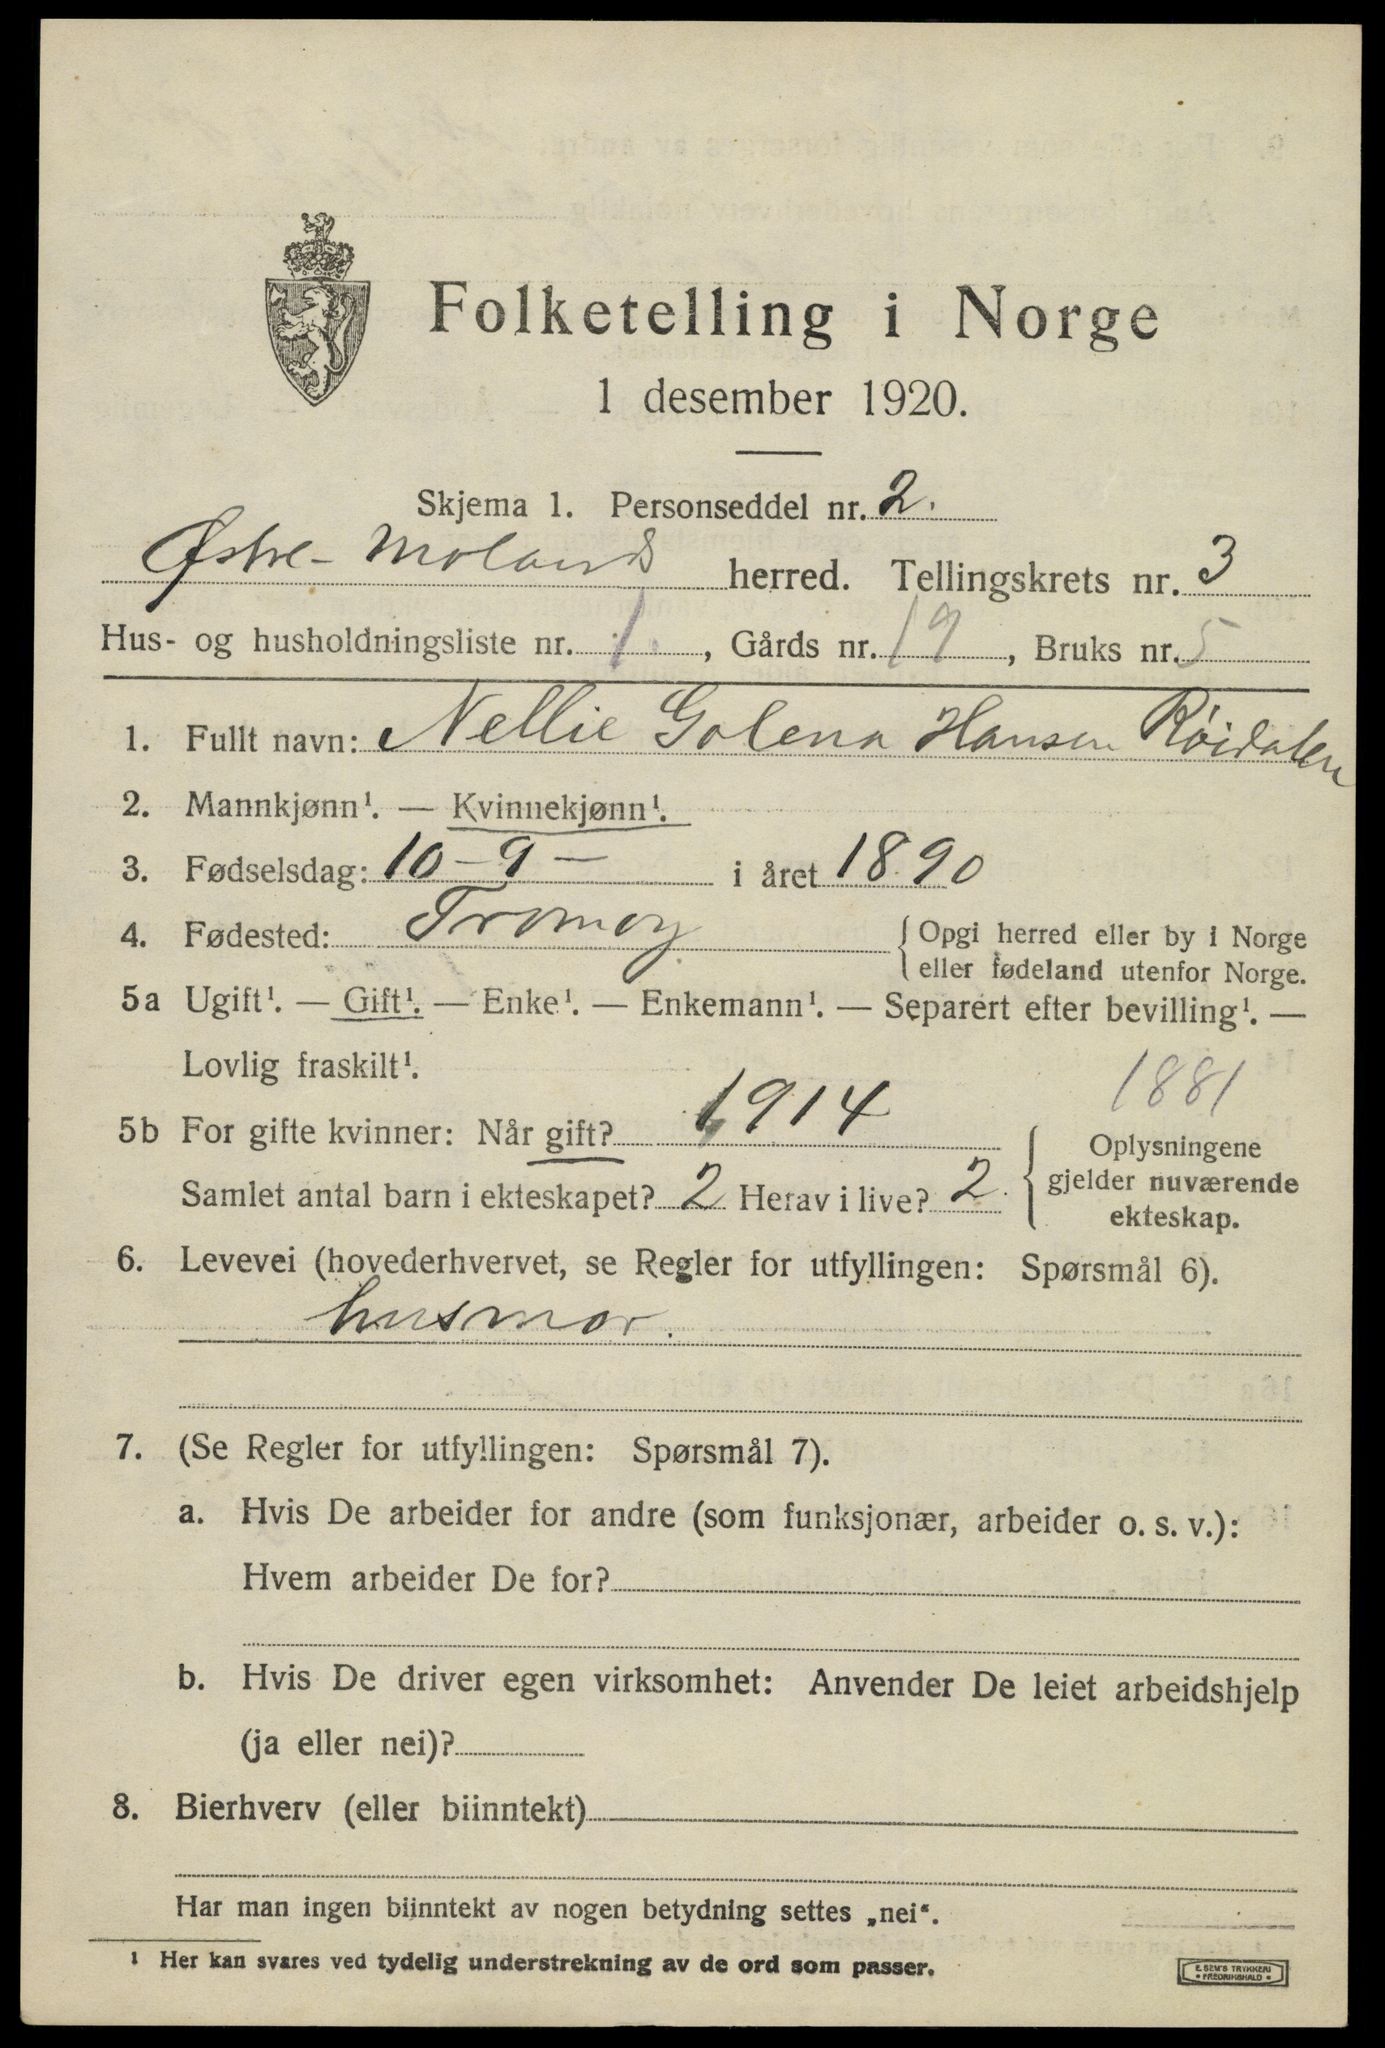 Folketelling i Norge
1 desember 1920.
Skjema 1. Personseddel nr. 2.
Østre-Molands herred. Tellingskrets nr. 3
Hus- og husholdningsliste nr. 1, Gårds nr. 19, Bruks nr. 5
1. Fullt navn: Nellie Golena Hansen Røidalen
2. Mannkjønn¹. — Kvinnekjønn¹.
3. Fødselsdag: 10-9- i året 1890
4. Fødested: Tromøy. { Opgi herred eller by i Norge
eller fødeland utenfor Norge.
5a Ugift¹. — Gift¹. — Enke¹. — Enkemann¹. — Separert efter bevilling¹. —
Lovlig fraskilt¹.
1881
5b For gifte kvinner: Når gift? 1914
Samlet antal barn i ekteskapet? 2 Herav i live? 2. { Oplysningene
gjelder nuværende
ekteskap.
6. Levevei (hovederhvervet, se Regler for utfyllingen: Spørsmål 6).
husmor.
7. (Se Regler for utfyllingen: Spørsmål 7).
a. Hvis De arbeider for andre (som funksjonær, arbeider o. s. v.):
Hvem arbeider De for?
b. Hvis De driver egen virksomhet: Anvender De leiet arbeidshjelp
(ja eller nei)?
8. Bierhverv (eller biinntekt)
Har man ingen biinntekt av nogen betydning settes „nei“.
¹ Her kan svares ved tydelig understrekning av de ord som passer.
E. SEM'S TRYKKERI
FREDRIKSHALD